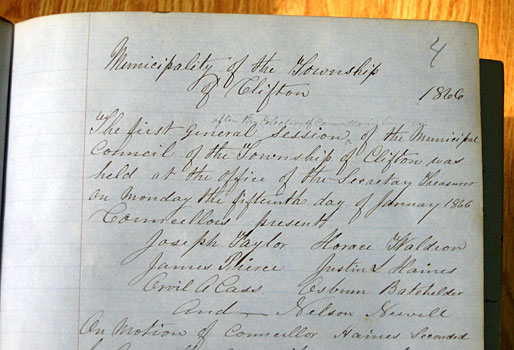 4
Municipality of the Township
of Clifton 1866
after the Election of Councillors
The first general Session, of the Municipal
Council of the Township of Clifton was
held at the office of the Secretary Treasurer
on Monday the fifteenth day of January 1866
Councillors present
Joseph Taylor Horace Waldron
James Pierce Justin L Haines
Orvil A Cass Osburn Batchelder
And Nelson Newell
On Motion of Councillor Haines Seconded
by